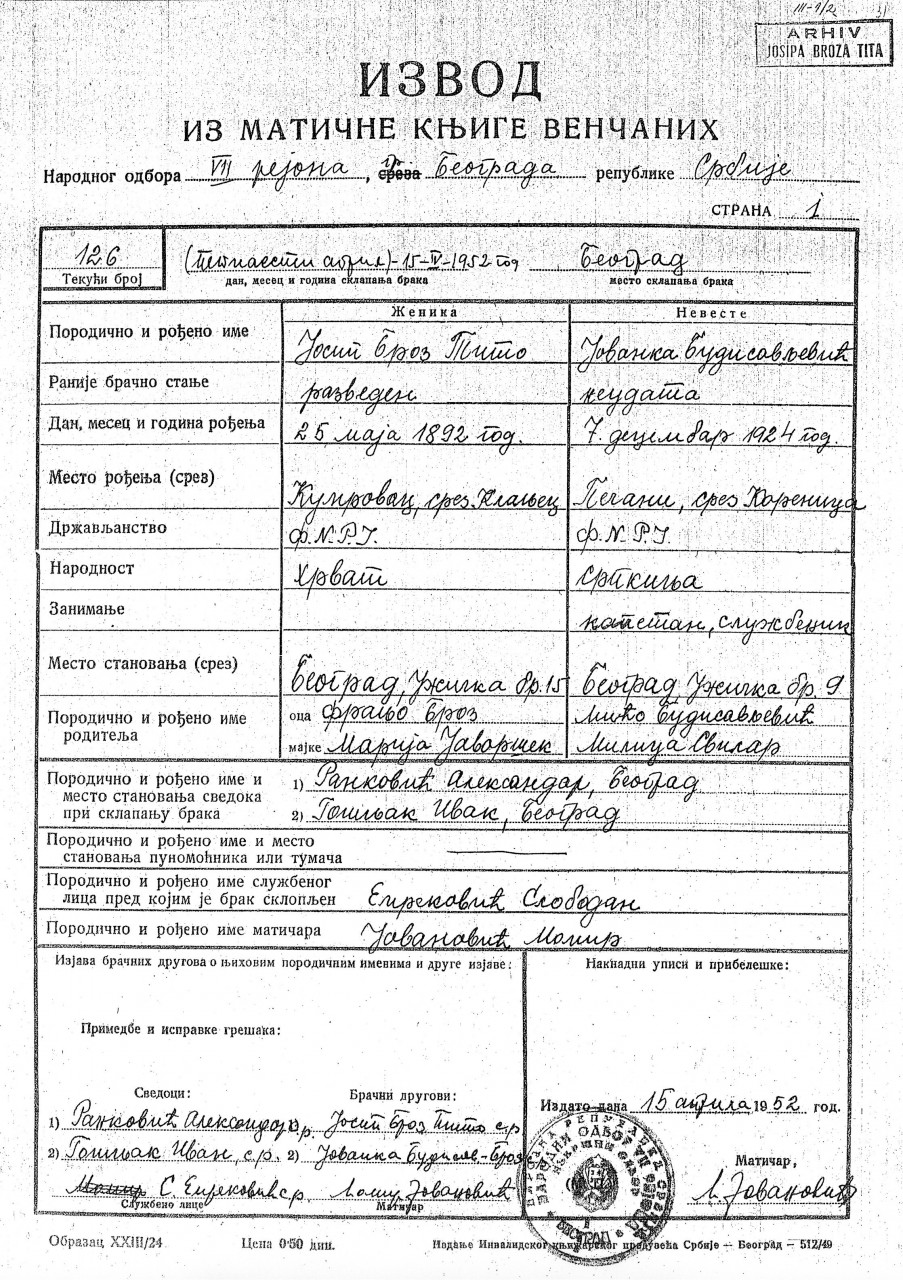 III-9/2
ARHIV
JOSIPA BROZA TITA
ИЗВОД
ИЗ МАТИЧНЕ КЊИГЕ ВЕНЧАНИХ
Народног одбора VII рејона, гр среза Београда републике Србије
СТРАНА 1
126 (петнаести април)-15-IV-1952 год Београд
Текући број дан, месец и година склапања брака место склапања брака
Женика Невесте
Породично и рођено име Јосип Броз Тито Јованка Будисављевић
Раније брачно стање разведен неудата
Дан, месец и година рођења 25 маја 1892 год. 7. децембар 1924 год.
Место рођења (срез) Купровац, срез Клањец Пећани, срез Кореница
Држављанство Ф.N.Р.Ј. Ф.N.Р.Ј.
Народност Хрват српкиња
Занимање капетан, службеник
Место становања (срез) Београд, Ужичка бр. 15 Београд, Ужичка бр. 9
Породично и рођено име оца Фрањо Броз Мићо Будисављевић
родитеља мајке Марија Јаворшек Милица Свилар
Породично и рођено име и 1) Ранковић Александар, Београд
место становања сведока
при склапању брака 2) Гошњак Иван, Београд
Породично и рођено име и место
становања пуномоћника или тумача
Породично и рођено име службеног
лица пред којим је брак склопљен Слободан
Породично и рођено име матичара Јовановић Момир
Изјава брачних другова о њиховим породичним именима и друге изјаве: Накнадни уписи и прибелешке:
Примедбе и исправке грешака:
Сведоци: Брачни другови:
Издато дана 15 априла 1952 год.
1) Ранковић Александар, с.р. 1) Јосип Броз Тито с.р.
2) Гошњак Иван, с.р. 2) Јованка Будисав-Броз
Матичар,
Момир С. с.р. Момир Јовановић М. Јовановић
Службено лице Матичар
БЕОГРАД
Образац XXIII/24 Цена 0·50 дин. Издање Инвалидског књижарског предузећа Србије — Београд — 512/49